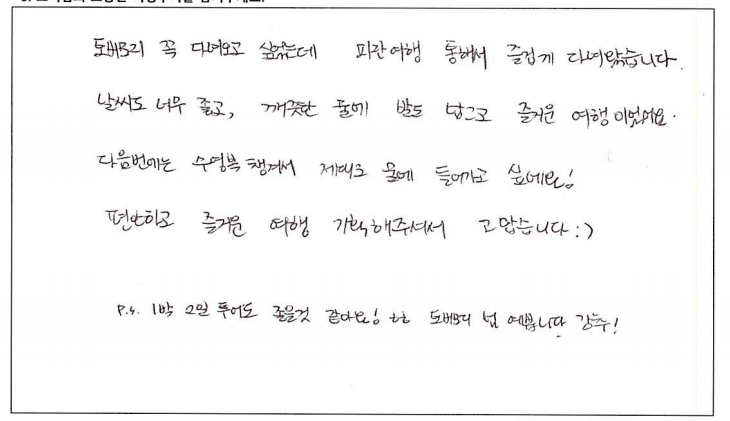 도버리 꼭 다녀오고 싶었는데 파란여행 통해서 즐겁게 다녀왔습니다.
날씨도 너무 좋고, 깨끗한 물에 발도 담그고 즐거운 여행이었어요.
다음번에는 수영복 챙겨서 제대로 물에 들어가고 싶네요!
편안하고 즐거운 여행 기획해주셔서 고맙습니다 :)
P.S. 1박 2일 투어도 좋을것 같아요! ㅎㅎ 도버리 넘 예쁩니다 강추!